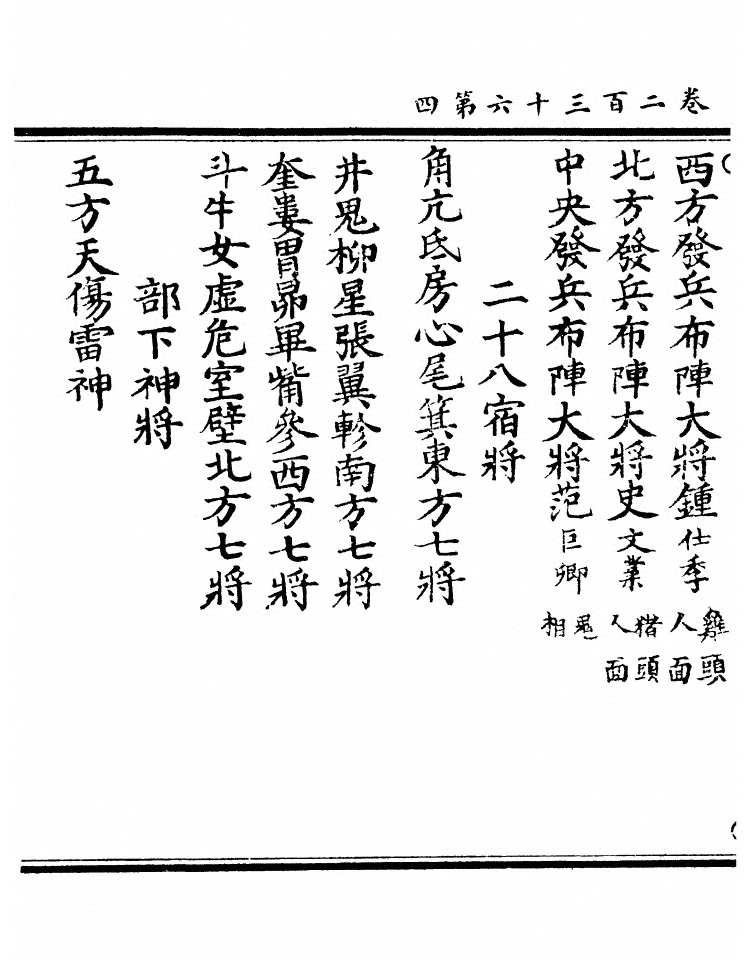 卷二百三十六第四
西方發兵布陣大將鍾仕季雞頭人面
北方發兵布陣大將史文業猪頭人面
中央發兵布陣大將范巨卿鬼相
二十八宿將
角亢氐房心尾箕東方七將
井鬼柳星張翼軫南方七將
奎婁胃昴畢觜參西方七將
斗牛女虛危室壁北方七將
部下神將
五方天傷雷神